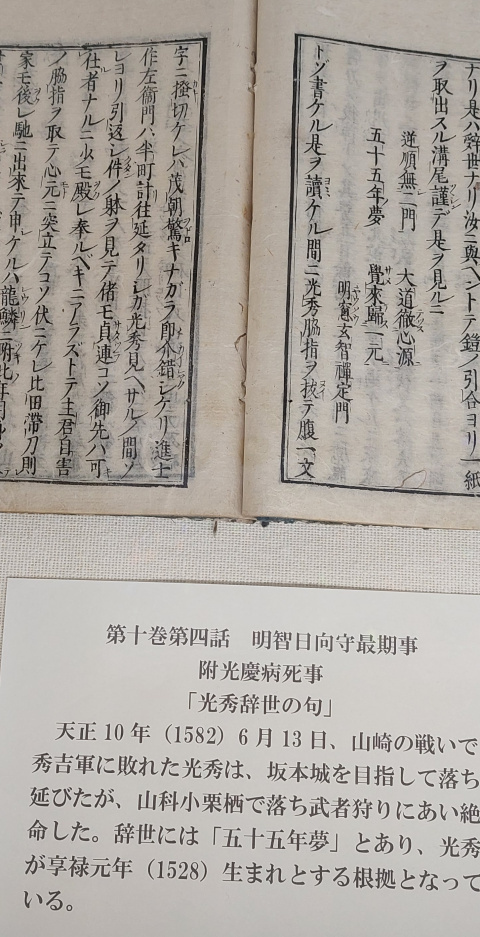 ナリ是ハ辞世ナリ汝ニ與ヘントテ鎧ノ引合ヨリ一紙
ヲ取出スル溝尾謹デ是ヲ見ルニ
逆順無二門　大道徹心源
五十五年夢　覺來歸一元
明窓玄智禪定門
トゾ書ケル是ヲ讀ケル間ニ光秀脇指ヲ抜テ腹一文
字ニ掻切ケレハ茂朝驚キナガラ即介錯シケリ進士
作左衞門ハ半町計往延タリシガ光秀見ヘサルノ間ソ
レヨリ引返シ件ノ躰ヲ見テ偖モ貞連コソ御先ハ可
仕者ナルニ少モ殿レ奉ルベキニアラズトテ主君自害
ノ脇指ヲ取テ心元ニ突立テコソ伏ニケレ比田帶刀則
家モ後レ馳ニ出來テ申ケルハ龍鱗ニ附
第十巻第四話　明智日向守最期事
附光慶病死事
「光秀辞世の句」
天正10年（1582）6月13日、山崎の戦いで
秀吉軍に敗れた光秀は、坂本城を目指して落ち
延びたが、山科小栗栖で落ち武者狩りにあい絶
命した。辞世には「五十五年夢」とあり、光秀
が享禄元年（1528）生まれとする根拠となって
いる。